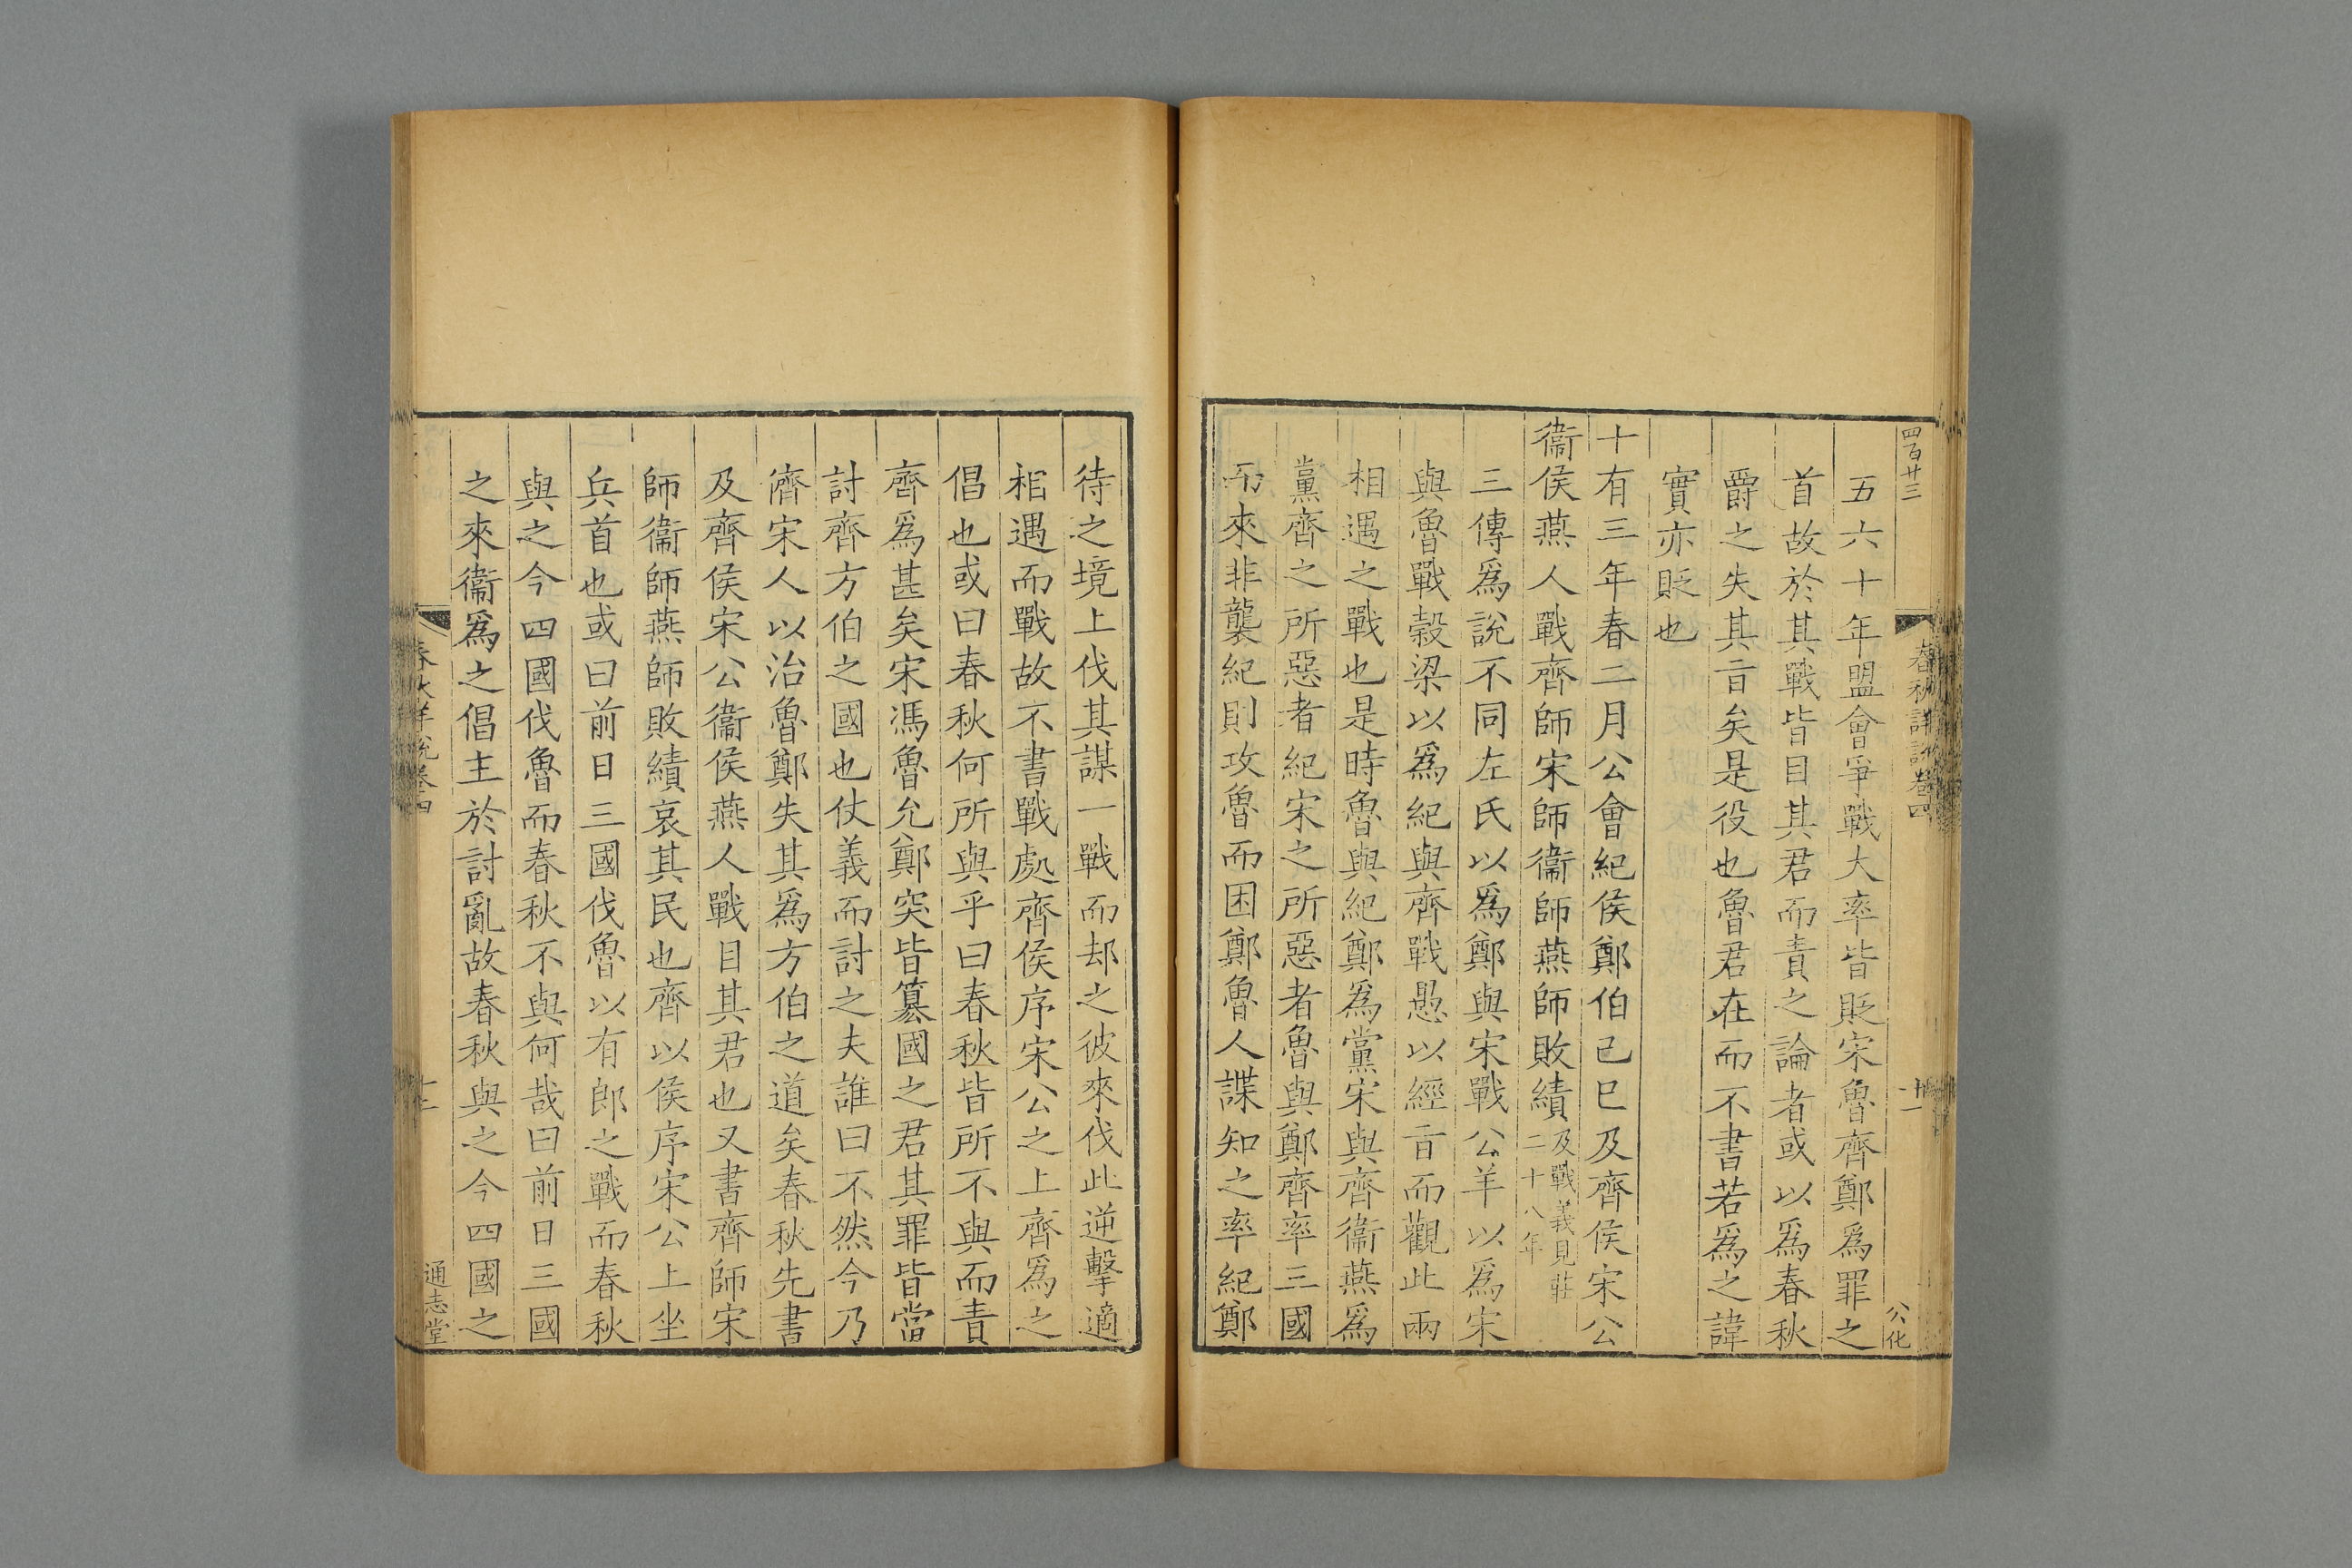 四百廿三
春秋詳說卷四
十一
公化
五六十年盟會爭戰大率皆貶宋魯齊鄭爲罪之
首故於其戰皆目其君而責之論者或以爲春秋
爵之失其旨矣是役也魯君在而不書若爲之諱
實亦貶也
十有三年春二月公會紀侯鄭伯己巳及齊侯宋公
衞侯燕人戰齊師宋師衞師燕師敗績及戰義見莊二十八年
三傳爲說不同左氏以爲鄭與宋戰公羊以爲宋
與魯戰穀梁以爲紀與齊戰愚以經旨而觀此兩
相遇之戰也是時魯與紀鄭爲黨宋與齊衞燕爲
黨齊之所惡者紀宋之所惡者魯與鄭齊率三國
而來非襲紀則攻魯而困鄭魯人諜知之率紀鄭
待之境上伐其謀一戰而却之彼來伐此逆擊適
相遇而戰故不書戰處齊侯序宋公之上齊爲之
倡也或曰春秋何所與乎曰春秋皆所不與而責
齊爲甚矣宋馮魯允鄭突皆簒國之君其罪皆當
討齊方伯之國也仗義而討之夫誰曰不然今乃
儕宋人以治魯鄭失其爲方伯之道矣春秋先書
及齊侯宋公衞侯燕人戰目其君也又書齊師宋
師衞師燕師敗績哀其民也齊以侯序宋公上坐
兵首也或曰前日三國伐魯以有郎之戰而春秋
與之今四國伐魯而春秋不與何哉曰前日三國
之來衞爲之倡主於討亂故春秋與之今四國之
春秋詳說卷四
十一
通志堂